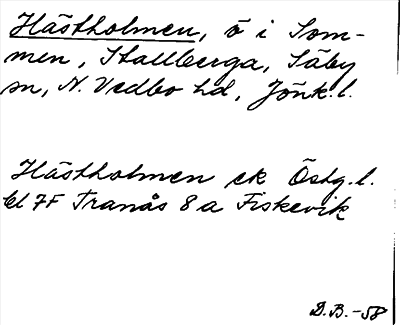 Hästholmen, ö i Som-
men, Stallberga, Säby
sn, N. Vedbo hd, Jönk.l.
Hästholmen ek Östg.l.
bl 7F Tranås 8 a Fiskevik
D.B.-58